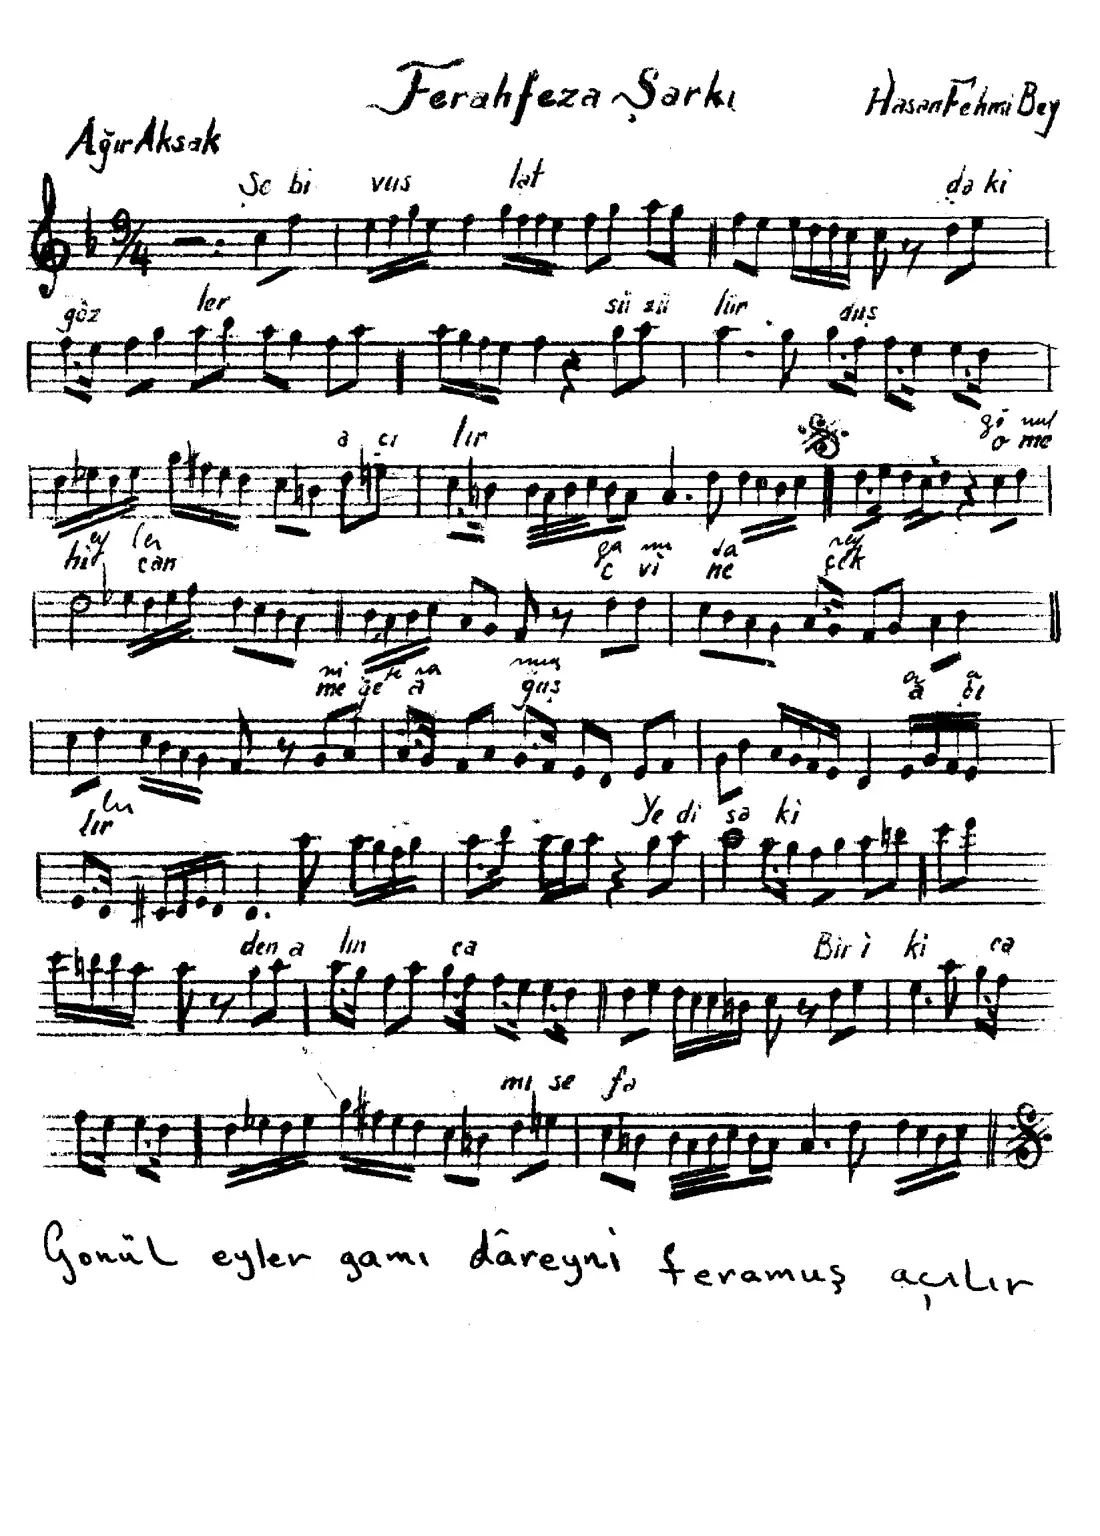 Ferahfeza Şarkı
Hasan Fehmi Bey
Ağır Aksak
9/4
Şe bi vus lat da ki
göz ler sü zü lür düş
a çı lır
gö nül
o me
ey ler ga mı da rey
hit can e vi ne çek
ni fe ra muş a ç
me ğe a ğuş a çı
lır
Ye di sa ki
den a lın ca Bir i ki ca
mı se fa
Gönül eyler gamı dâreyni feramuş açılır